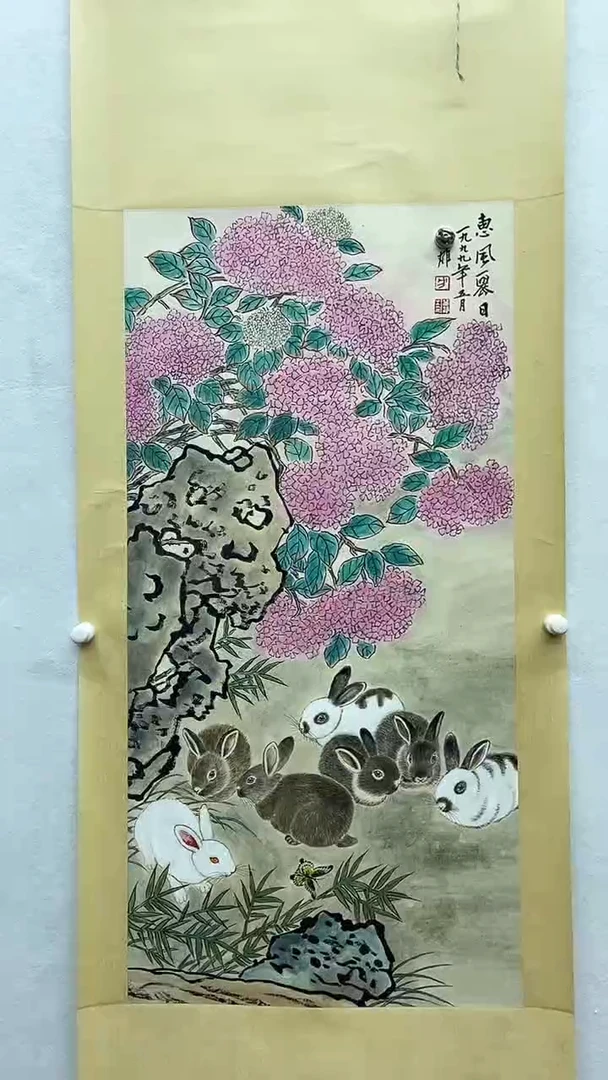 惠风麗日
一九九九年五月